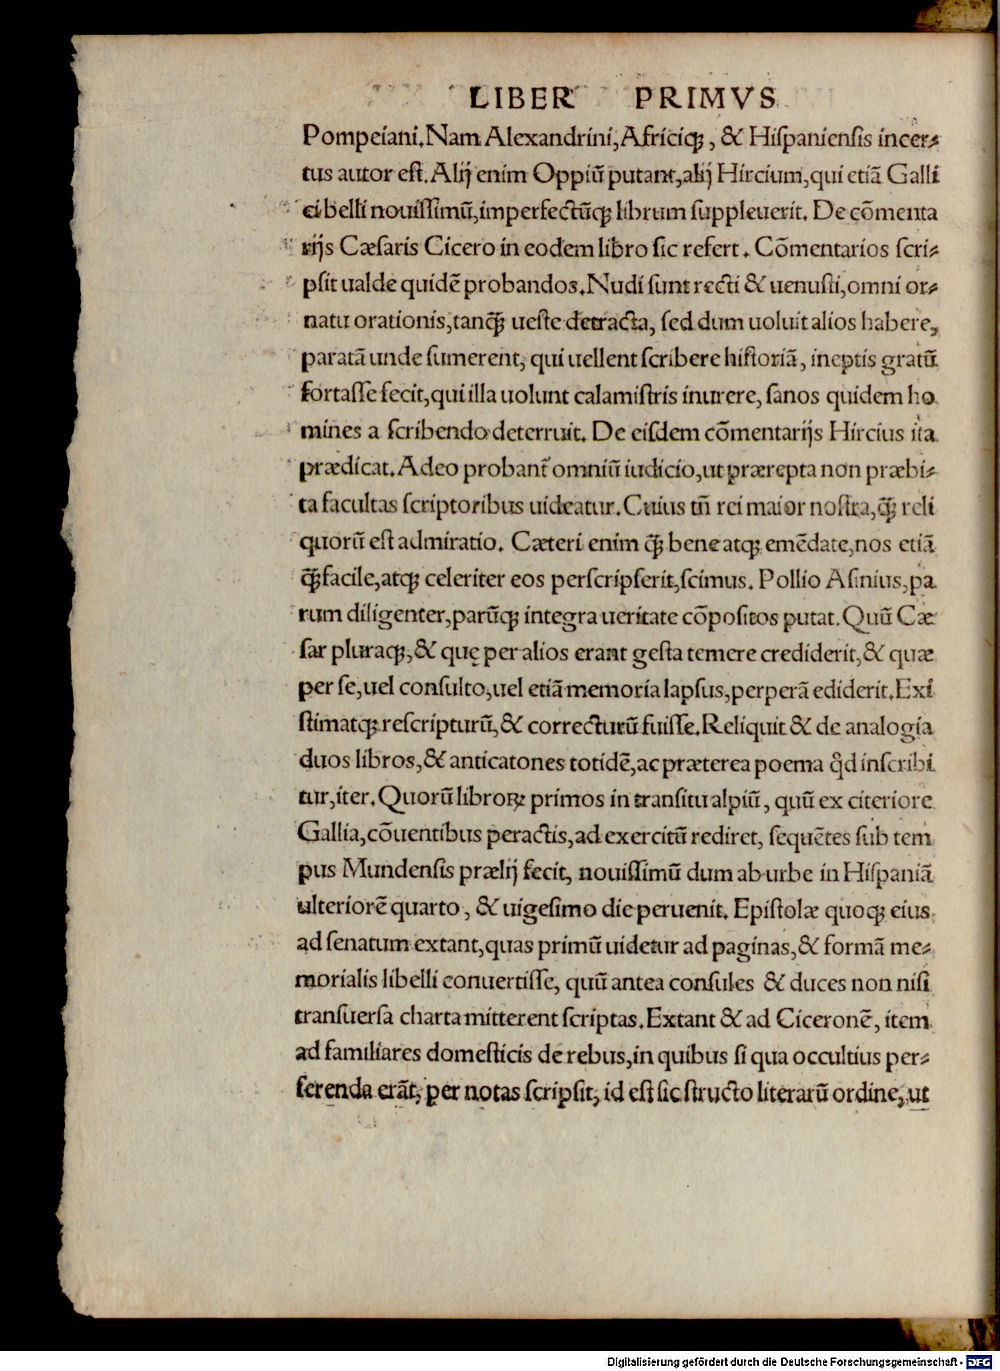 LIBER PRIMVS
Pompeiani. Nam Alexandrini, Africiq́;, & Hiſpanienſis incer⸗
tus autor eſt. Alij enim Oppiū putant, alij Hircium, qui etiā Galli
ci belli nouiſſimū, imperfectūq́; librum ſuppleuerit. De cōmenta
rijs Cæſaris Cicero in eodem libro ſic refert. Cōmentarios ſcri⸗
pſit ualde quidē probandos. Nudi ſunt recti & uenuſti, omni or⸗
natu orationis, tanq̃ ueſte detracta, ſed dum uoluit alios habere,
paratā unde ſumerent, qui uellent ſcribere hiſtoriā, ineptis gratū
fortaſſe fecit, qui illa uolunt calamiſtris inurere, ſanos quidem ho
mines a ſcribendo deterruit. De eiſdem cōmentarijs Hircius ita
prædicat. Adeo probant᷑ omniū iudicio, ut prærepta non præbi⸗
ta facultas ſcriptoribus uideatur. Cuius tñ rei maior noſtra, q̃ reli
quorū eſt admiratio. Cæteri enim q̃ bene atq; emēdate, nos etiā
q̃ facile, atq; celeriter eos perſcripſerit, ſcimus. Pollio Aſinius, pa
rum diligenter, parūq; integra ueritate cōpoſitos putat. Quū Cæ
ſar pluraq;, & quę per alios erant geſta temere crediderit, & quæ
per ſe, uel conſulto, uel etiā memoria lapſus, perperā ediderit. Exi
ſtimatq; reſcripturū, & correcturū fuiſſe. Reliquit & de analogia
duos libros, & anticatones totidē, ac præterea poema qd̓ inſcribi
tur, iter. Quorū libroꝝ primos in tranſitu alpiū, quū ex citeriore
Gallia, cōuentibus peractis, ad exercitū rediret, ſequētes ſub tem
pus Mundenſis prælij fecit, nouiſſimū dum ab urbe in Hiſpaniā
ulteriorē quarto, & uigeſimo die peruenit. Epiſtolæ quoq; eius
ad ſenatum extant, quas primū uidetur ad paginas, & formā me⸗
morialis libelli conuertiſſe, quū antea conſules & duces non niſi
tranſuerſa charta mitterent ſcriptas. Extant & ad Ciceronē, item
ad familiares domeſticis de rebus, in quibus ſi qua occultius per⸗
ferenda erāt, per notas ſcripſit, id eſt ſic ſtructo literarū ordine, ut
Digitalisierung gefördert durch die Deutsche Forschungsgemeinschaft - DFG